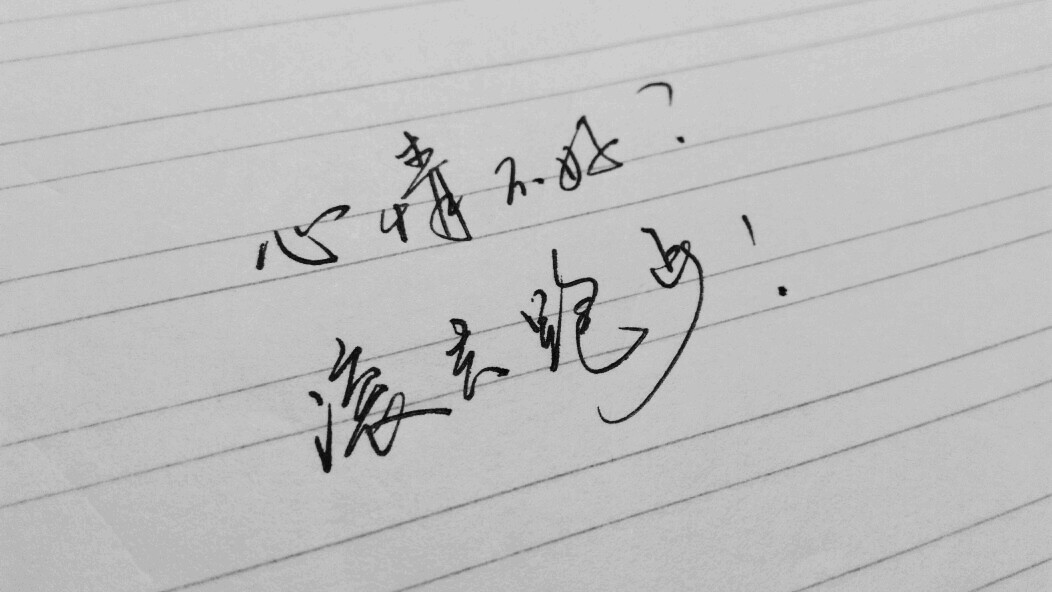 心情不好?
滚去跑步!